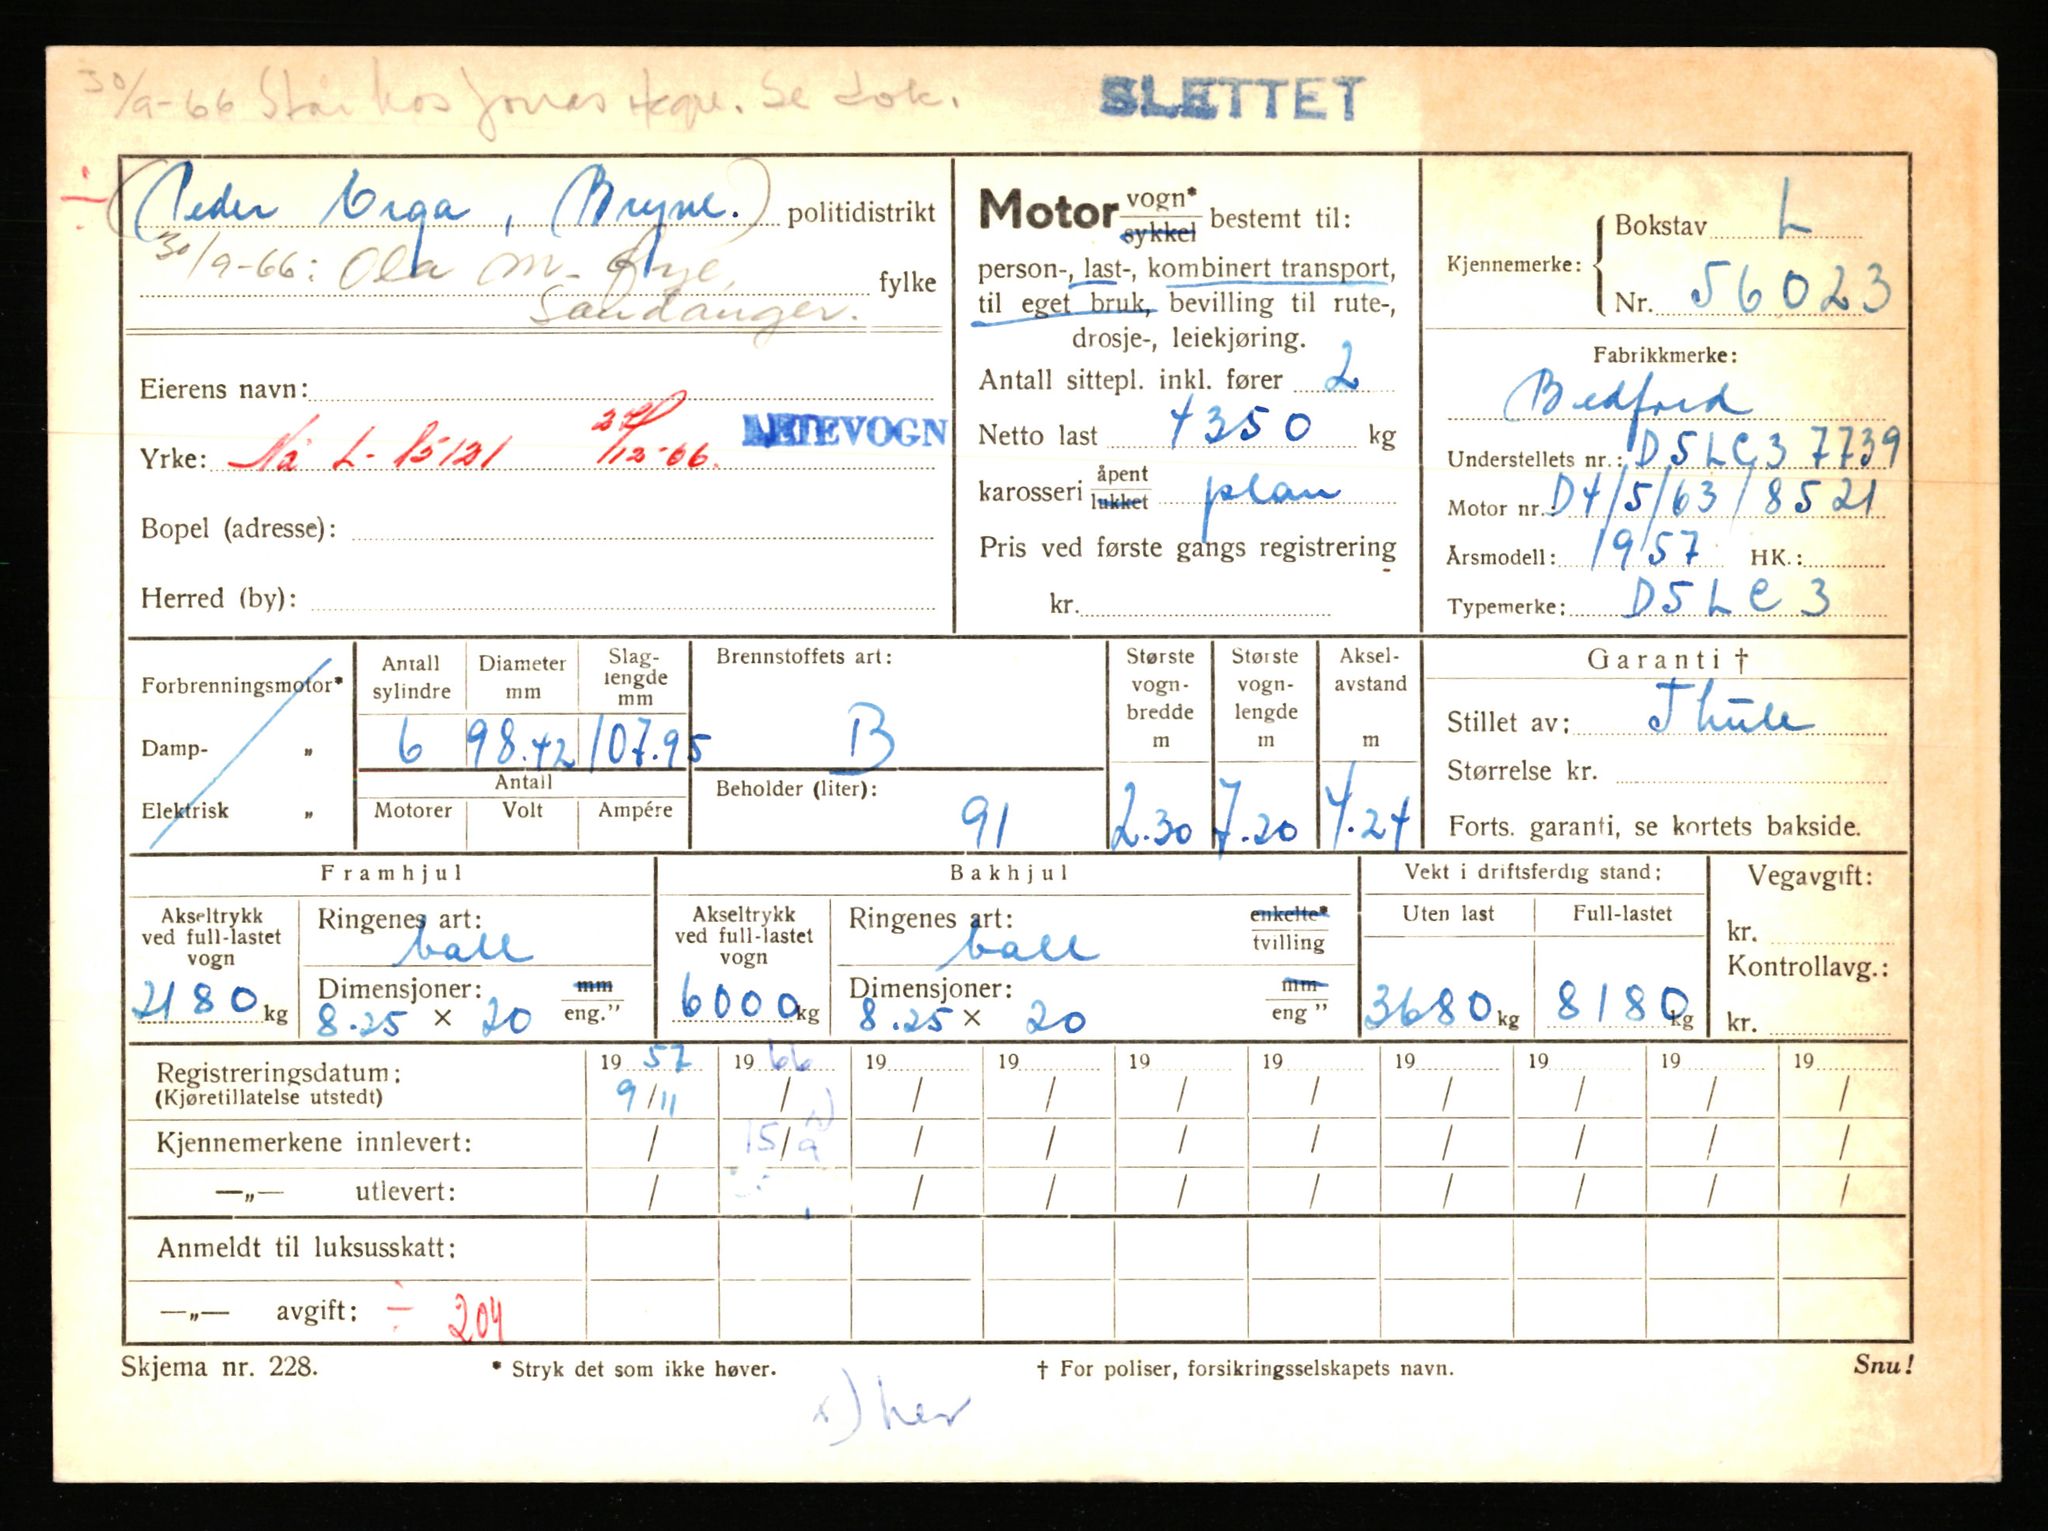 30/9-66 Står hos Jonas. Se dok.
SLETTET
(Peder Orga, Bryne.) politidistrikt
30/9-66: Ola M. Øye, fylke
Sandanger.
Eierens navn:
Yrke: Nå L-15121 27/12-66. LEIEVOGN
Bopel (adresse):
Herred (by):
Motor vogn* / sykkel bestemt til:
person-, last-, kombinert transport,
til eget bruk, bevilling til rute-,
drosje-, leiekjøring.
Antall sittepl. inkl. fører 2
Netto last 4350 kg
karosseri åpent / lukket plan
Pris ved første gangs registrering
kr.
Kjennemerke: Bokstav L
Nr. 56023
Fabrikkmerke:
Bedford
Understellets nr.: D5LC3 7739
Motor nr. D4/5/63/8521
Årsmodell: 1957 HK.:
Typemerke: D5LC3
Forbrenningsmotor*
Damp- „
Elektrisk „
Antall sylindre 6
Diameter mm 98.42
Slaglengde mm 107.95
Antall
Motorer Volt Ampére
Brennstoffets art:
B
Beholder (liter):
91
Største vogn-bredde m 2.30
Største vogn-lengde m 7.20
Aksel-avstand m 4.24
Garanti †
Stillet av: Thule
Størrelse kr.
Forts. garanti, se kortets bakside.
Framhjul
Akseltrykk ved full-lastet vogn 2180 kg
Ringenes art: ball
Dimensjoner: mm / eng."
8.25 × 20
Bakhjul
Akseltrykk ved full-lastet vogn 6000 kg
Ringenes art: ball enkelte* / tvilling
Dimensjoner: mm / eng"
8.25 × 20
Vekt i driftsferdig stand:
Uten last 3680 kg
Full-lastet 8180 kg
Vegavgift:
kr.
Kontrollavg.:
kr.
Registreringsdatum: 19 57 19 66 19 19 19 19 19 19 19 19
(Kjøretillatelse utstedt) 9/11 / / / / / / / / /
Kjennemerkene innlevert: / 15/9 x) / / / / / / / /
—„— utlevert: / / / / / / / / /
Anmeldt til luksusskatt:
—„— avgift: ÷ 204
Skjema nr. 228. * Stryk det som ikke høver. † For poliser, forsikringsselskapets navn. Snu!
x) her